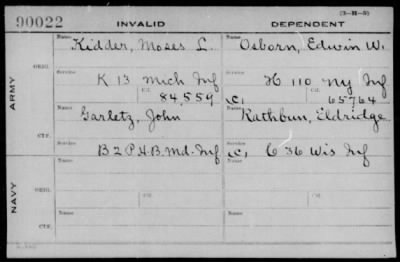 (3-M-5)
90022 INVALID DEPENDENT
Name Kidder, Moses L. Name Osborn, Edwin W.
ORIG.
Service K 13 Mich Inf Service H 110 NY Inf
Ctf. 84,559 C, Ctf. 65764
ARMY
Name Garletz, John Name Rathbun, Eldridge
CTF.
Service B 2 P.H.B. Md. Inf Service C, G 36 Wis Inf
Name Name
ORIG.
Service Ctf. Service Ctf.
NAVY
Name Name
CTF.
Service Service